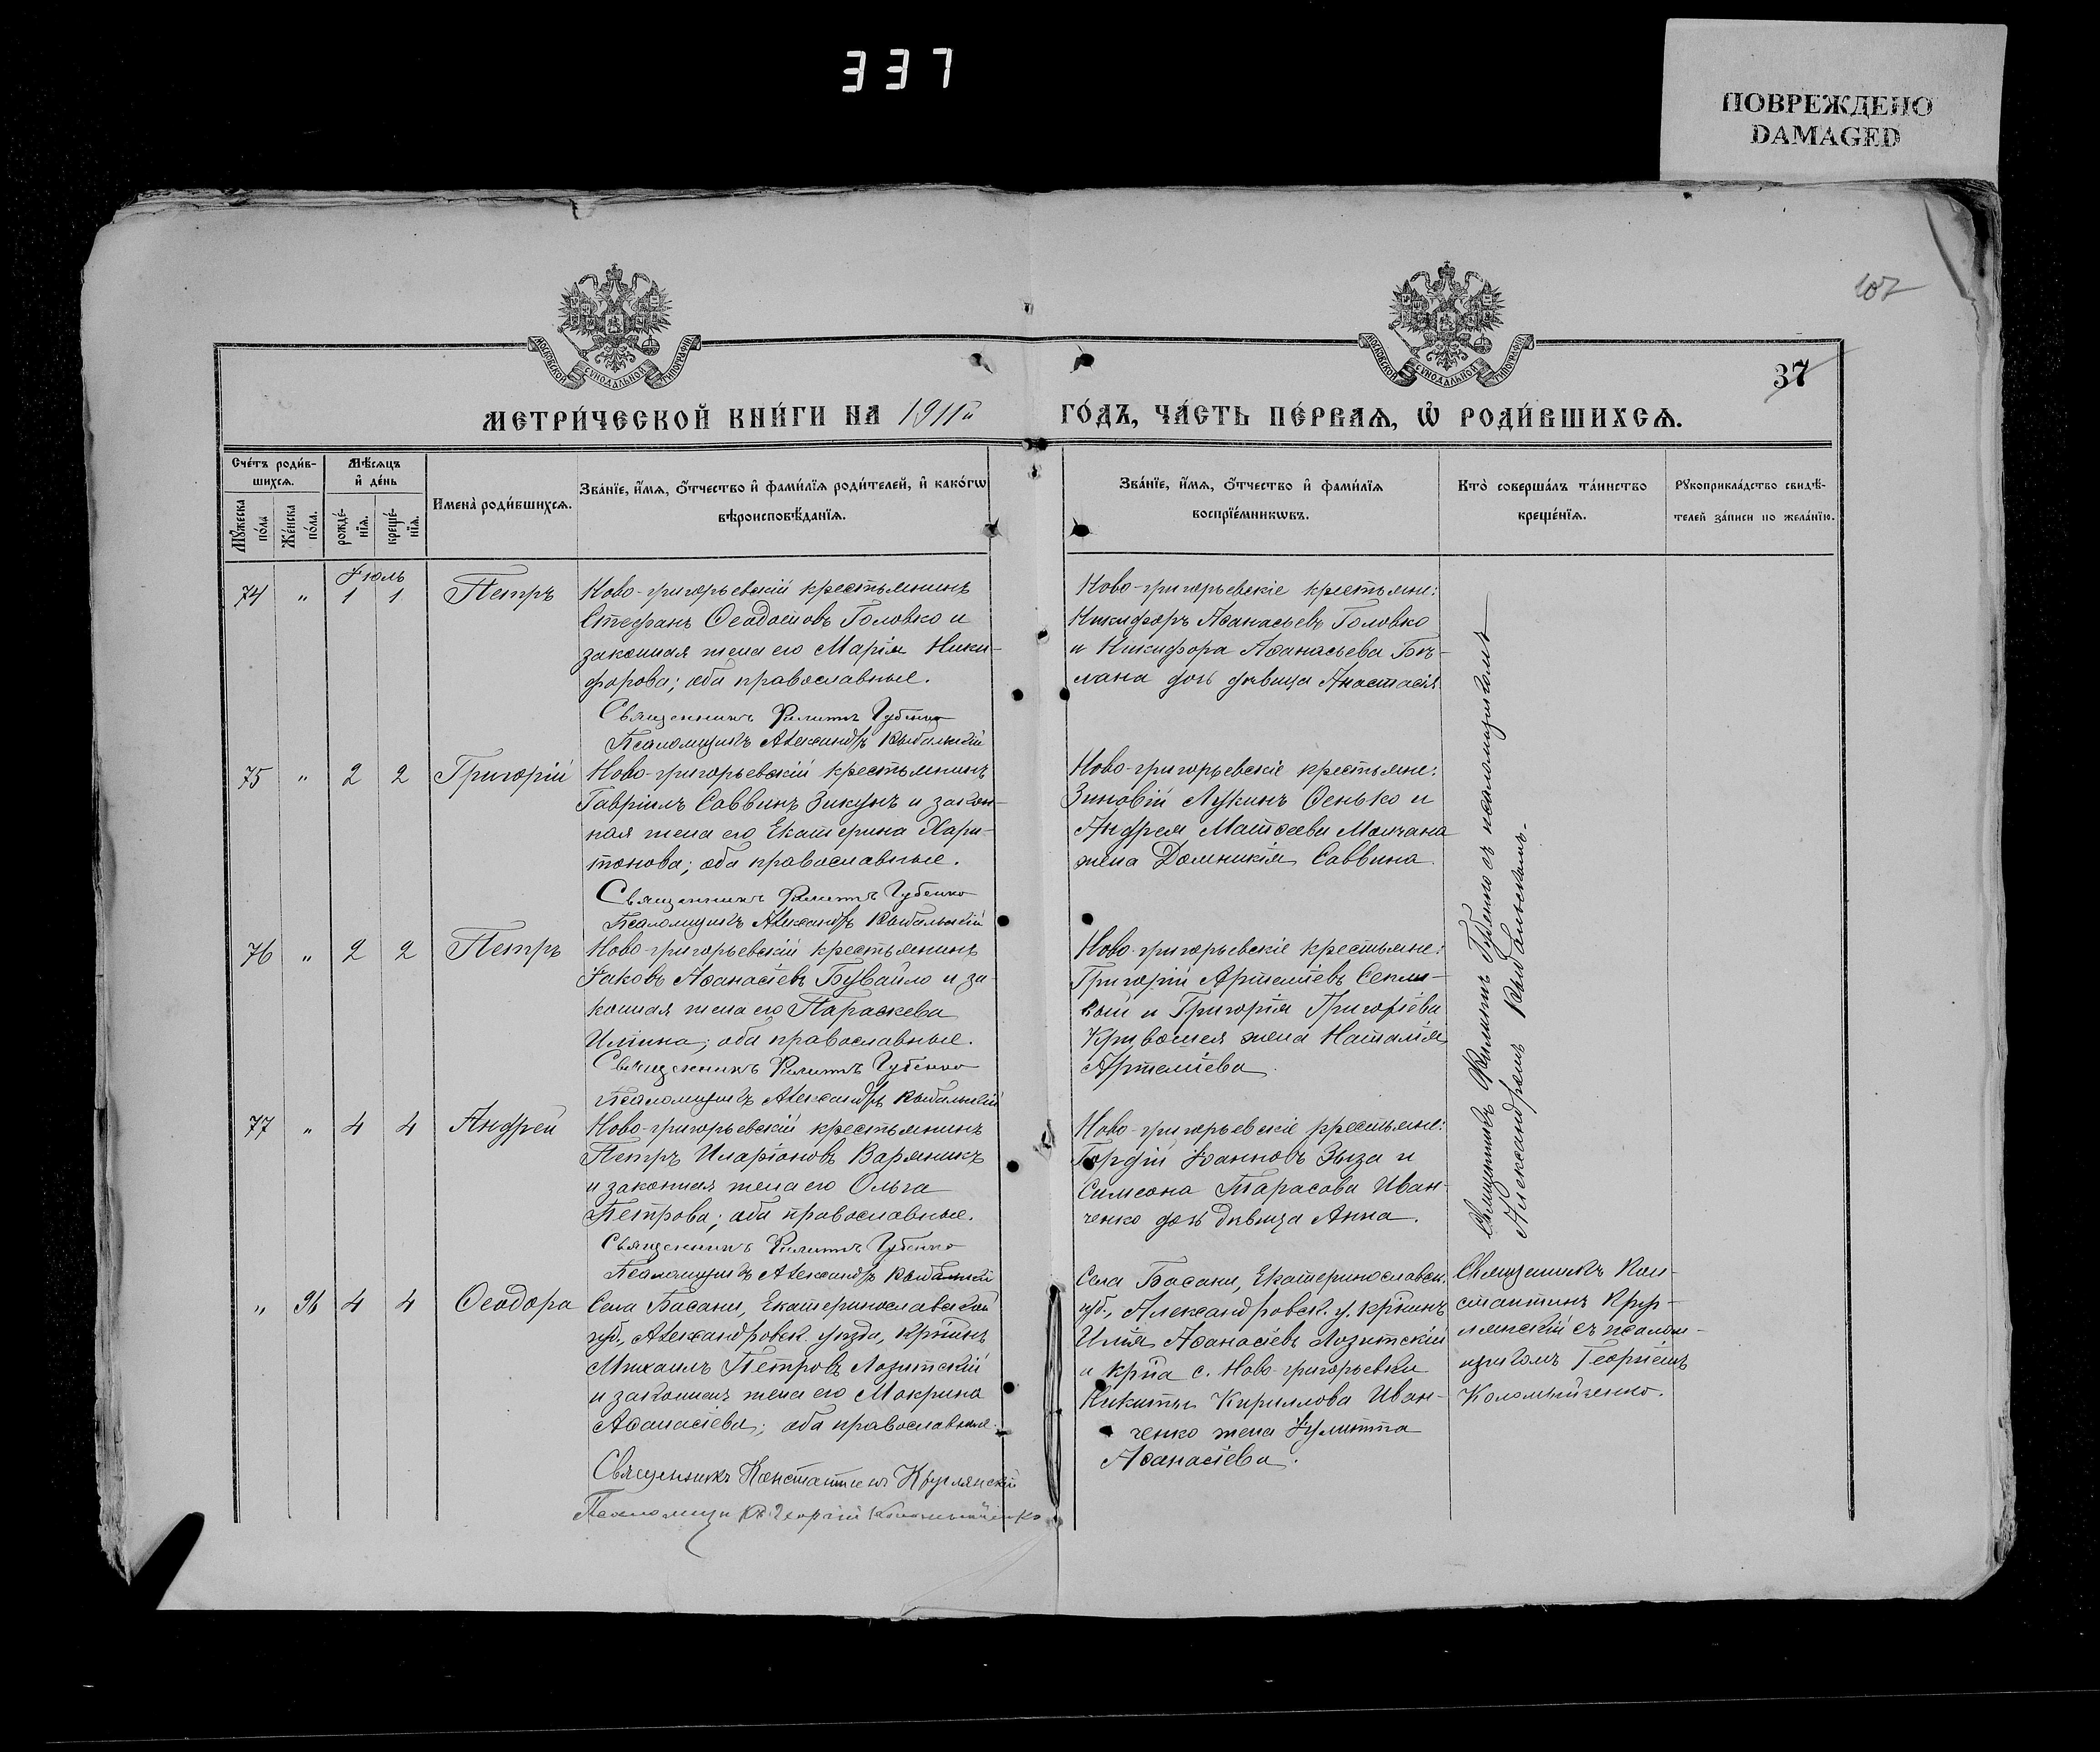 337
ПОВРЕЖДЕНО
DAMAGED
107
37
МОСКОВСКОЙ СѴНОДАЛЬНОЙ ТИПОГРАФІИ
МОСКОВСКОЙ СѴНОДАЛЬНОЙ ТИПОГРАФІИ
МЕТРИ́ЧЕСКОЙ КНИ́ГИ НА 1911й ГО́ДЪ, ЧА́СТЬ ПЕ́РВАѦ, Ѡ҆ РОДИ́ВШИХСѦ.
Сче́тъ роди́в-
шихсѧ.
Мꙋ́жеска по́ла
Же́нска по́ла.
Мѣ́сѧцъ
и҆ де́нь
рожде́-
нїѧ.
креще́-
нїѧ.
Имена̀ роди́вшихсѧ.
Зва́нїе, и҆́мѧ, ѻ҆́тчество и҆ фами́лїѧ роди́телей, и҆ како́гѡ
вѣроисповѣ́данїѧ.
Зва́нїе, и҆́мѧ, ѻ҆́тчество и҆ фами́лїѧ
воспрїе́мникѡвъ.
Кто̀ соверша́лъ та́инство
креще́нїѧ.
Рꙋкоприкла́дство свидѣ́-
телей за́писи по жела́нїю.
Іюль
74 " 1 1 Петръ
Ново-григорьевскій крестьянинъ
Стефанъ Ѳеодосіовъ Головко и
законная жена его Марія Ники-
форова; оба православные.
Священникъ Филиппъ Губенко
Псаломщикъ Александръ Кибальскій
Ново-григорьевскіе крестьяне:
Никифоръ Аѳанасьевъ Головко
и Никифора Аѳанасьева
дочь дѣвица Анастасія
75 " 2 2 Григорій
Ново-григорьевскій крестьянинъ
Гавріилъ Саввинъ Зикунъ и закон-
ная жена его Екатерина Хари-
тонова; оба православные.
Священникъ Филиппъ Губенко
Псаломщикъ Александръ Кибальскій
Ново-григорьевскіе крестьяне:
Зиновій Лукинъ Сенько и
Андрея Матѳеева Молчана
жена Домникія Саввина
76 " 2 2 Петръ
Ново-григорьевскій крестьянинъ
Іаковъ Аѳанасіевъ Бувайло и за-
конная жена его Параскева
Иліина; оба православные.
Священникъ Филиппъ Губенко
Псаломщикъ Александръ Кибальскій
Ново-григорьевскіе крестьяне:
Григорій Артеміевъ
и Григорія Григоріева
жена Наталія
Артеміева.
77 " 4 4 Андрей
Ново-григорьевскій крестьянинъ
Петръ Иларіоновъ Вареникъ
и законная жена его Ольга
Петрова; оба православные.
Священникъ Филиппъ Губенко
Псаломщикъ Александръ Кибальскій
Ново-григорьевскіе крестьяне:
Гордій Іоанновъ Зыза и
Симеона Тарасова Иван-
ченко дочь дѣвица Анна.
Священникъ Филиппъ Губенко съ псаломщикомъ
Александромъ Кибальскимъ.
" 96 4 4 Ѳеодора
Села Басани, Екатеринославской
губ., Александровск. уѣзда, кр̃нинъ
Михаилъ Петровъ Лозитскій
и законная жена его Мокрина
Аѳанасіева; оба православные.
Священникъ Константинъ Круглянскій
Псаломщикъ Георгій Коломыйченко
Села Басани, Екатеринославск.
губ., Александровск. у. кр̃нинъ
Илія Аѳанасіевъ Лозитскій
и кр̃на с. Ново-григорьевки
Никиты Кириллова Иван-
ченко жена Іулитта
Аѳанасіева.
Священникъ Кон-
стантинъ Круг-
лянскій съ псалом-
щикомъ Георгіемъ
Коломыйченко.